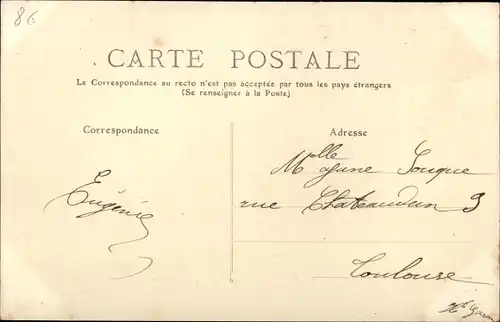 86
CARTE POSTALE
La Correspondance au recto n'est pas acceptée par tous les pays étrangers
(Se renseigner à la Poste)
Correspondance
Adresse
Mlle Jane
rue Chateaudun 9
Eugénie
Toulouse
Hte Garon